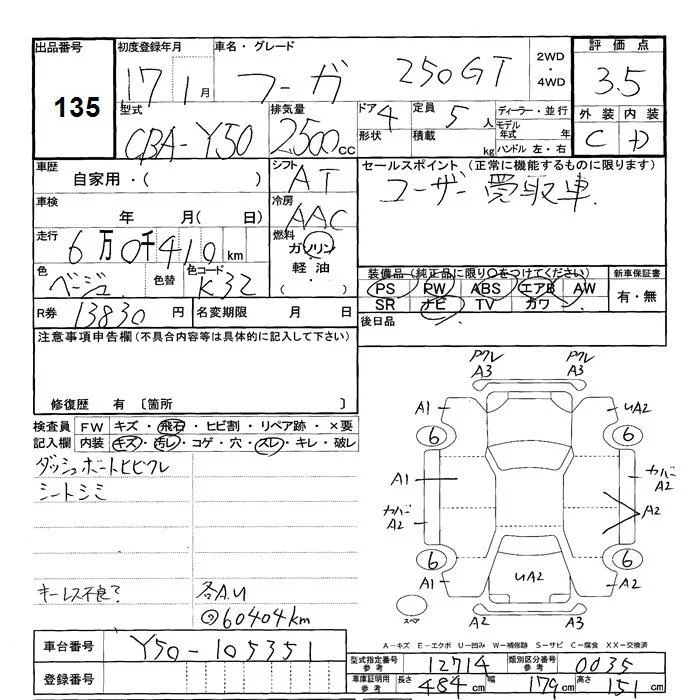 出品番号 初度登録年月 車名・グレード 2WD ・ 4WD 評価点
135 17 1月 フーガ 250GT 3.5
型式 排気量 ドア 4 定員 5人 ディーラー・並行 外装 内装
CBA-Y50 2500cc 形状 積載 kg モデル年式 年 ハンドル 左・右 C D
車歴 シフト セールスポイント (正常に機能するものに限ります)
自家用・( ) AT ユーザー買取車.
車検 年 月( 日) 冷房 AAC
走行 6万0千410km 燃料 ガソリン 軽油・( )
色 ベージュ 色替 色コード K32
装備品(純正品に限り○をつけてください) 新車保証書
PS PW ABS エアB AW 有・無
SR ナビ TV カワ
R券 13830円 名変期限 月 日 後日品
注意事項申告欄(不具合内容等は具体的に記入して下さい)
修復歴 有 〔箇所 〕
検査員記入欄 FW キズ・飛石・ヒビ割・リペア跡・×要
内装 キズ・汚レ・コゲ・穴・スレ・キレ・破レ
ダッシュボートヒビワレ
シートシミ
キーレス不良? 各A.U
60404km
Pワレ A3 Pワレ A3
A1 UA2
6 6
A1 カバー A2
カバー A2 A2
6 6
A1 UA2 A2
A2 A3
スペア
A-キズ E-エクボ U-凹み W-補修跡 S-サビ C-腐食 XX-交換済
車台番号 Y50-105351
登録番号
型式指定番号 参考 12714 類別区分番号 参考 0035
車庫証明用 参考 長さ 484cm 幅 179cm 高さ 151cm